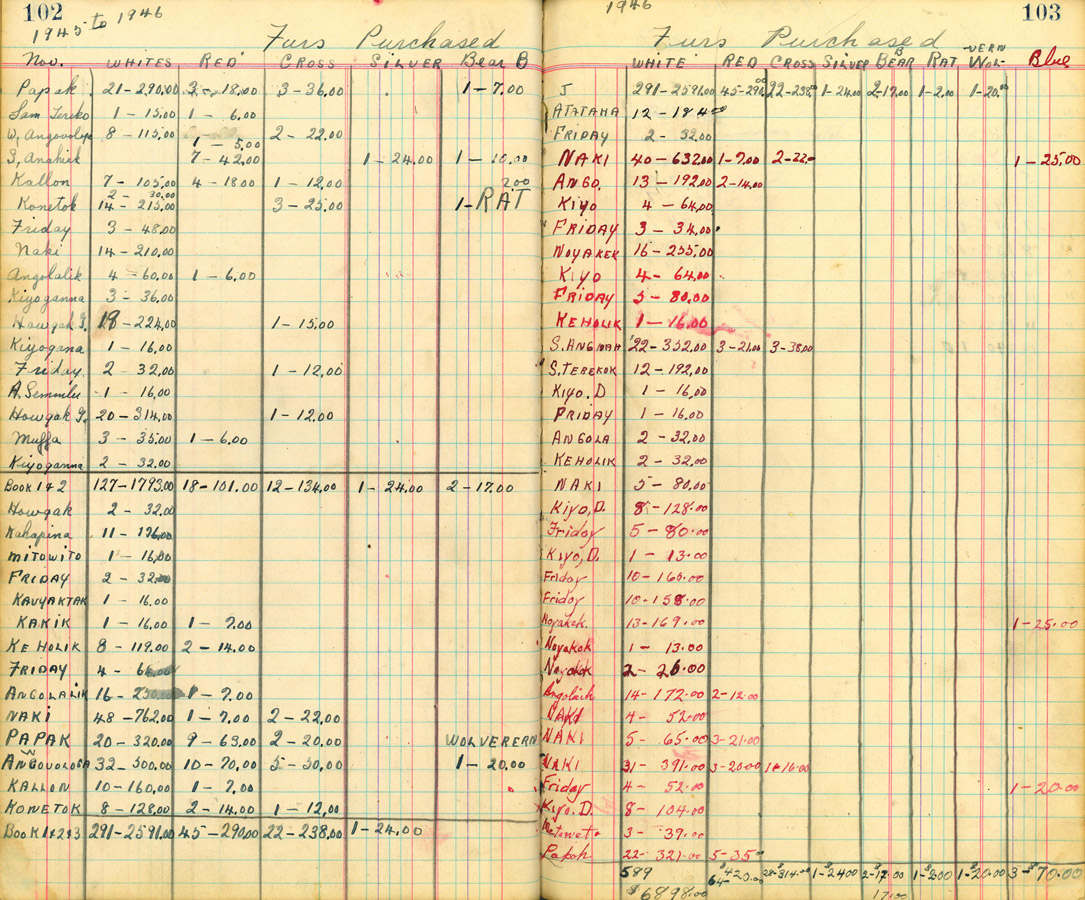 102
1945 to 1946
Furs Purchased
Nov. WHITES RED CROSS SILVER Bear B
Papak 21-290.00 3-18.00 3-36.00 1-7.00
Sam Teriko 1-15.00 1-6.00
W. Angovologa 8-115.00 1-5.00 2-22.00
S, Anahiek 7-42.00 1-24.00 1-10.00
Kallon 7-105.00 4-18.00 1-12.00 2.00
2-30.00
Konetok 14-215.00 3-25.00 1-RAT
Friday 3-48.00
Naki 14-210.00
Angolalik 4-60.00 1-6.00
Kiyoganna 3-36.00
Howgak G. 18-224.00 1-15.00
Kiyogana 1-16.00
Friday 2-32.00 1-12.00
A. Semmlu 1-16.00
Howgak G. 20-314.00 1-12.00
Muffa 3-35.00 1-6.00
Kiyoganna 2-32.00
Book 1&2 127-1793.00 18-101.00 12-134.00 1-24.00 2-17.00
Howgak 2-32.00
Kahapina 11-176.00
MITOWITO 1-16.00
FRIDAY 2-32.00
KAVYAKTAK 1-16.00
KAKIK 1-16.00 1-7.00
KEHOLIK 8-119.00 2-14.00
FRIDAY 4-
ANGOLALIK 16- 1-7.00
NAKI 48-762.00 1-7.00 2-22.00
PAPAK 20-320.00 9-63.00 2-20.00 WOLVERERN
W ANGOVOLOGA 32-500.00 10-70.00 5-50.00 1-20.00
KALLON 10-160.00 1-7.00
KONETOK 8-128.00 2-14.00 1-12.00
Book 1&2&3 291-2591.00 45-290.00 22-238.00 1-24.00
1946
103
Furs Purchased
WHITE RED CROSS SILVER B BEAR RAT -VERN WOL- Blue
J 291-2591.00 45-290.00 22-238.00 1-24.00 2-17.00 1-2.00 1-20.00
ATATAHA 12-184.00
FRIDAY 2-32.00
NAKI 40-632.00 1-7.00 2-22- 1-25.00
ANGO. 13-192.00 2-14.00
Kiyo 4-64.00
FRIDAY 3-34.00
NOYAKEK 16-255.00
KIYO 4-64.00
FRIDAY 5-80.00
KEHOLIK 1-16.00
S. ANGNAH 22-352.00 3-21.00 3-38.00
S. TEREKOK 12-192.00
Kiyo. D 1-16.00
FRIDAY 1-16.00
ANGOLA 2-32.00
KEHOLIK 2-32.00
NAKI 5-80.00
Kiyo, D. 8-128.00
Friday 5-80.00
Kiyo, D. 1-13.00
Friday 10-160.00
Friday 10-158.00
Noyakok 13-169.00 1-25.00
Noyakok 1-13.00
Noyakok 2-26.00
Angolaih 14-172.00 2-12.00
NAKI 4-52.00
NAKI 5-65.00 3-21.00
NAKI 31-391.00 3-20.00 1-16.00
Friday 4-52.00 1-20.00
Kiyo. D. 8-104.00
3-39.00
Papah 22-321.00 5-35.00
589 64-$420.00 28-$314.00 1-$24.00 2-$17.00 1-$2.00 1-$20.00 3-$70.00
$6898.00 17.00